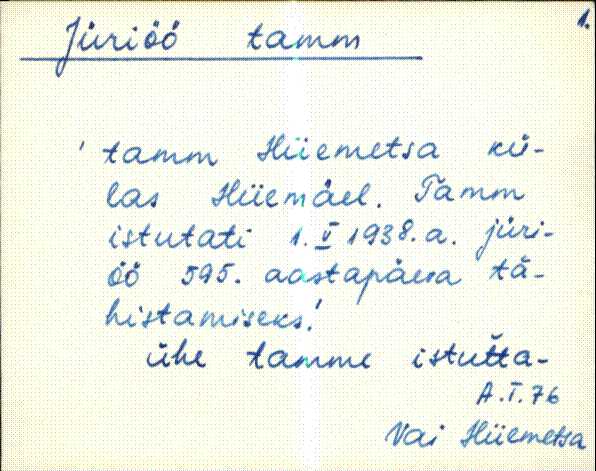 1.
Jüriöö tamm
' tamm Hiiemetsa kü-
las Hiiemäel. Tamm
istutati 1. V 1938. a. jüri-
öö 595. aastapäeva tä-
histamiseks.'
ühe tamme istutta-
A.T. 76
Vai Hiiemetsa